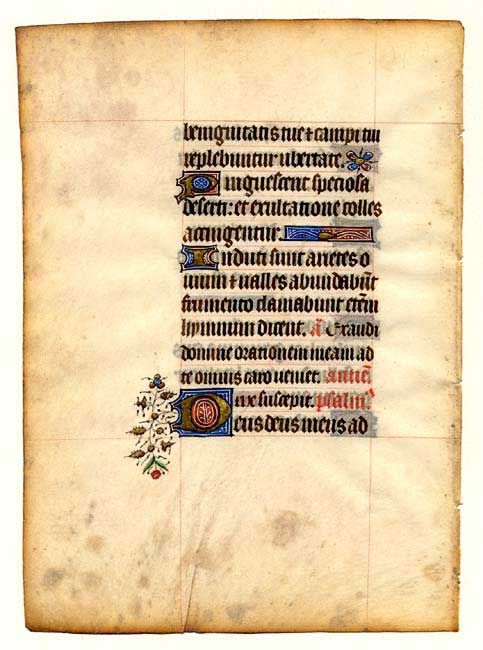 benignitatis tue ⁊ campi tui
replebuntur ubertate.
Pinguescent speciosa
deserti: et exultatione colles
accingentur.
Induti sunt arietes o
uium ⁊ ualles abundabūt
frumento clamabunt etem̄
hymnum dicent. a͞ Exaudi
domine orationem meam ad
te omnis caro ueniet. antiē.
me suscepit. psalm̄.
Deus deus meus ad